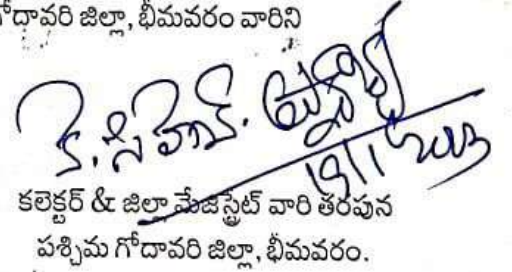 గోదావరి జిల్లా, భీమవరం వారిని
కె. సి హెచ్.
19/1/2023
కలెక్టర్ & జిల్లా మేజిస్ట్రేట్ వారి తరపున
పశ్చిమ గోదావరి జిల్లా, భీమవరం.